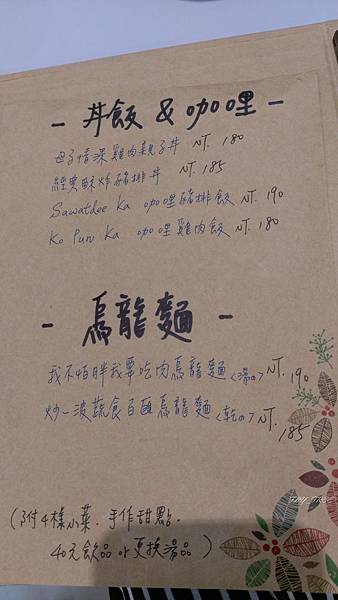 - 丼飯 & 咖哩 -
母子情深雞肉親子丼 NT. 180
經典酥炸豬排丼 NT. 185
Sawatdee Ka 咖哩豬排飯 NT. 190
Ko Pun Ka 咖哩雞肉飯 NT. 180
- 烏龍麵 -
我不怕胖我要吃肉烏龍麵<湯の> NT. 190
炒一波蔬食百匯烏龍麵<乾の> NT. 185
(附4樣小菜.手作甜點.
40元飲品 or 更換湯品)